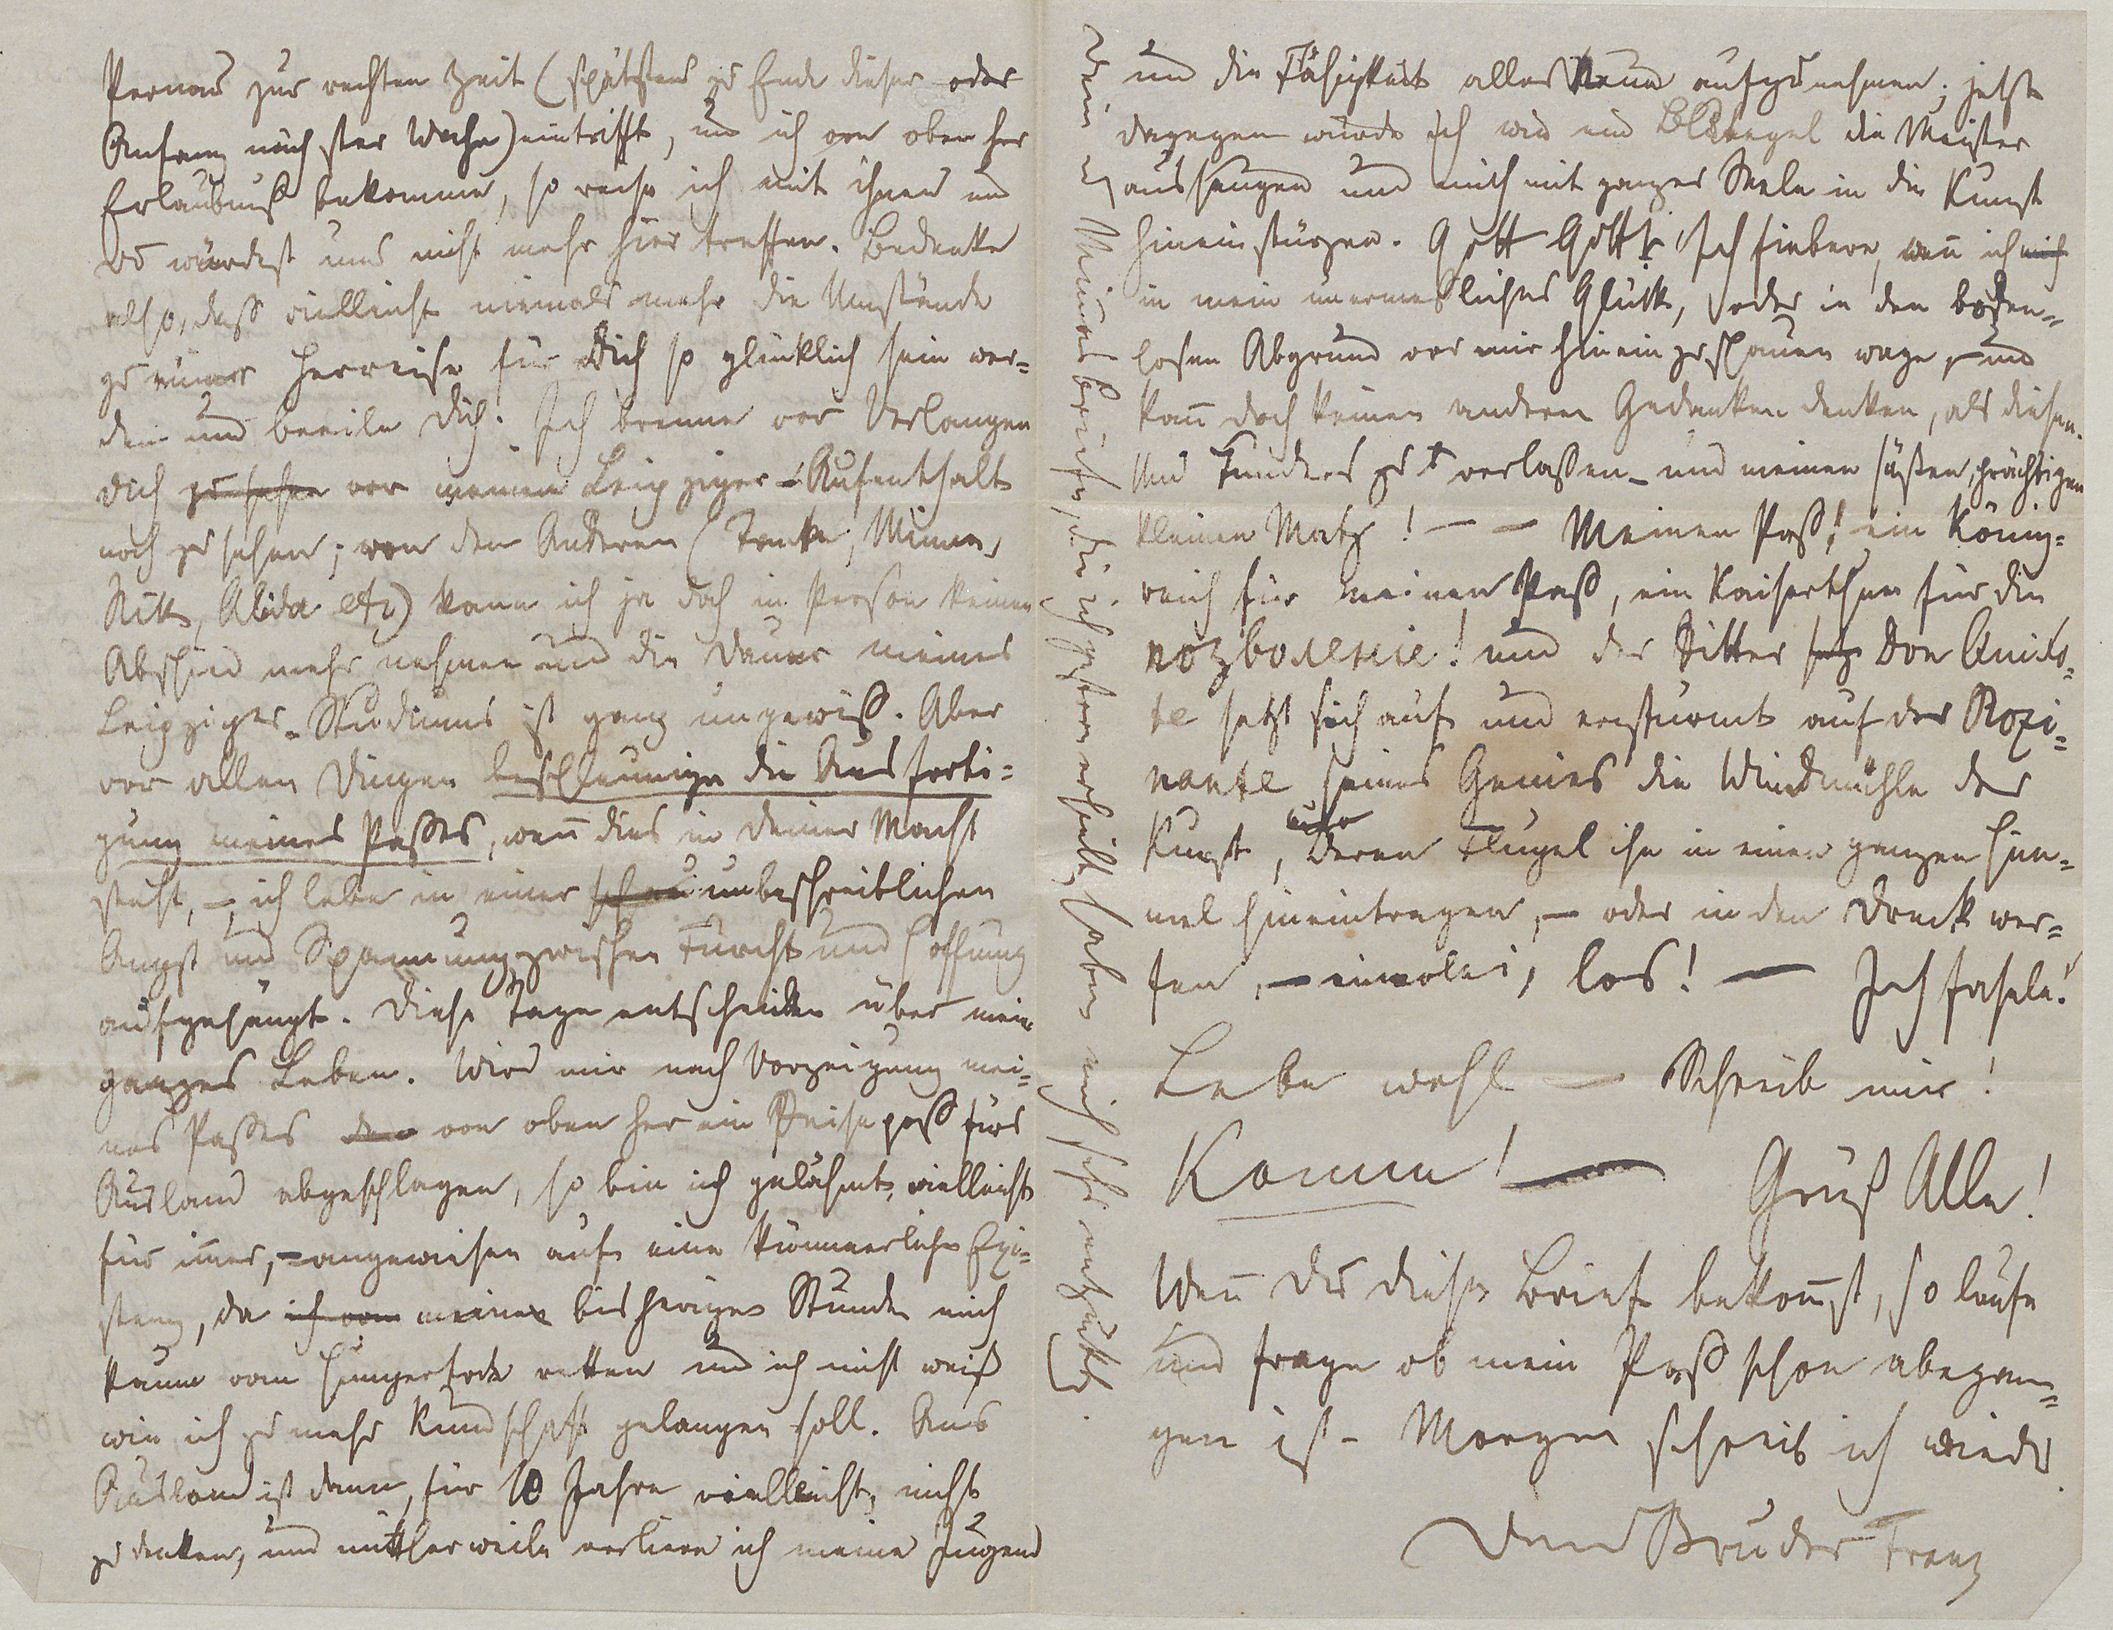 Pernau zur rechten Zeit (spätstens zu Ende dieser oder
Anfang nächster Woche) eintrifft, und ich von oben her
Erlaubniß bekomme, so reise ich mit ihnen und
Du würdest uns nicht mehr hier treffen. Bedenke
also, dass vielleicht niemals mehr die Umstände
zu einer Herreise für Dich so glücklich sein wer-
den und beeile Dich. Ich brenne vor Verlangen
Dich zu sehen vor meinem Leipziger-Aufenthalt
noch zu sehen; von den Anderen (Minna,
Alida etc) kann ich ja doch in Person keinen
Abschied mehr nehmen und die Dauer meines
Leipziger-Studiums ist ganz ungewiß. Aber
vor allen Dingen beschleunige die Ausferti-
gung meines Passes, wenn dies in Deiner Macht
steht, – ich lebe in einer unbeschreiblichen
Angst und Spannung zwischen Furcht und Hoffnung
aufgehängt. Diese Tage entscheiden über mein
ganzes Leben. Wird mir nach Vorzeigung mei-
nes Passes von oben her ein Reisepaß fürs
Ausland abgeschlagen, so bin ich gelähmt, vielleicht
für immer, – angewiesen auf eine kümmerliche Exi-
stenz, da ich von meine bisherigen Stunden mich
kaum vom Hungertode retten und ich nicht weiß
wie ich zu mehr Kundschaft gelangen soll. Ans
Ausland ist dann, für 10 Jahre vielleicht, nicht
zu denken, und mittlerweile verliere ich meine Jugend
und die Fähigkeit alles Neue aufzunehmen; jetzt
dagegen würde ich wie ein Blutegel die Meister
aussaugen und mich mit ganzer Seele in die Kunst
hineinstürzen. Gott Gott! Ich fiebere, wenn ich mich
in mein unermeßliches Glück, oder in den boden-
losen Abgrund vor mir hineinzuschauen wage, – und
kann doch keinen anderen Gedanken denken, als diesen.
Und zu verlassen – und meinen süßen, prächtigen
kleinen Matz! – – Meinen Paß! ein König-
reich für meinen Paß, ein Kaiserthum für die
позволенiе! und der Ritter Don Quixo-
te setzt sich auf und erstürmt auf der Rozi-
nante seines Genies die Windmühle der
Kunst, deren Flügel ihn in einen ganzen Him-
mel hineintragen, – oder in den Dreck wer-
fen, – einerlei, los! – Ich fasele!
Lebe wohl – Schreib mir!
Komm! – Grüß Alle!
Wenn Du diesen Brief bekommst, so laufe
und frage ob mein Paß schon abegan-
gen ist – Morgen schreib ich wieder.
Dein Bruder Franz
Dein & Minnas Briefe, die ich gestern erhielt, haben mich sehr entzückt.